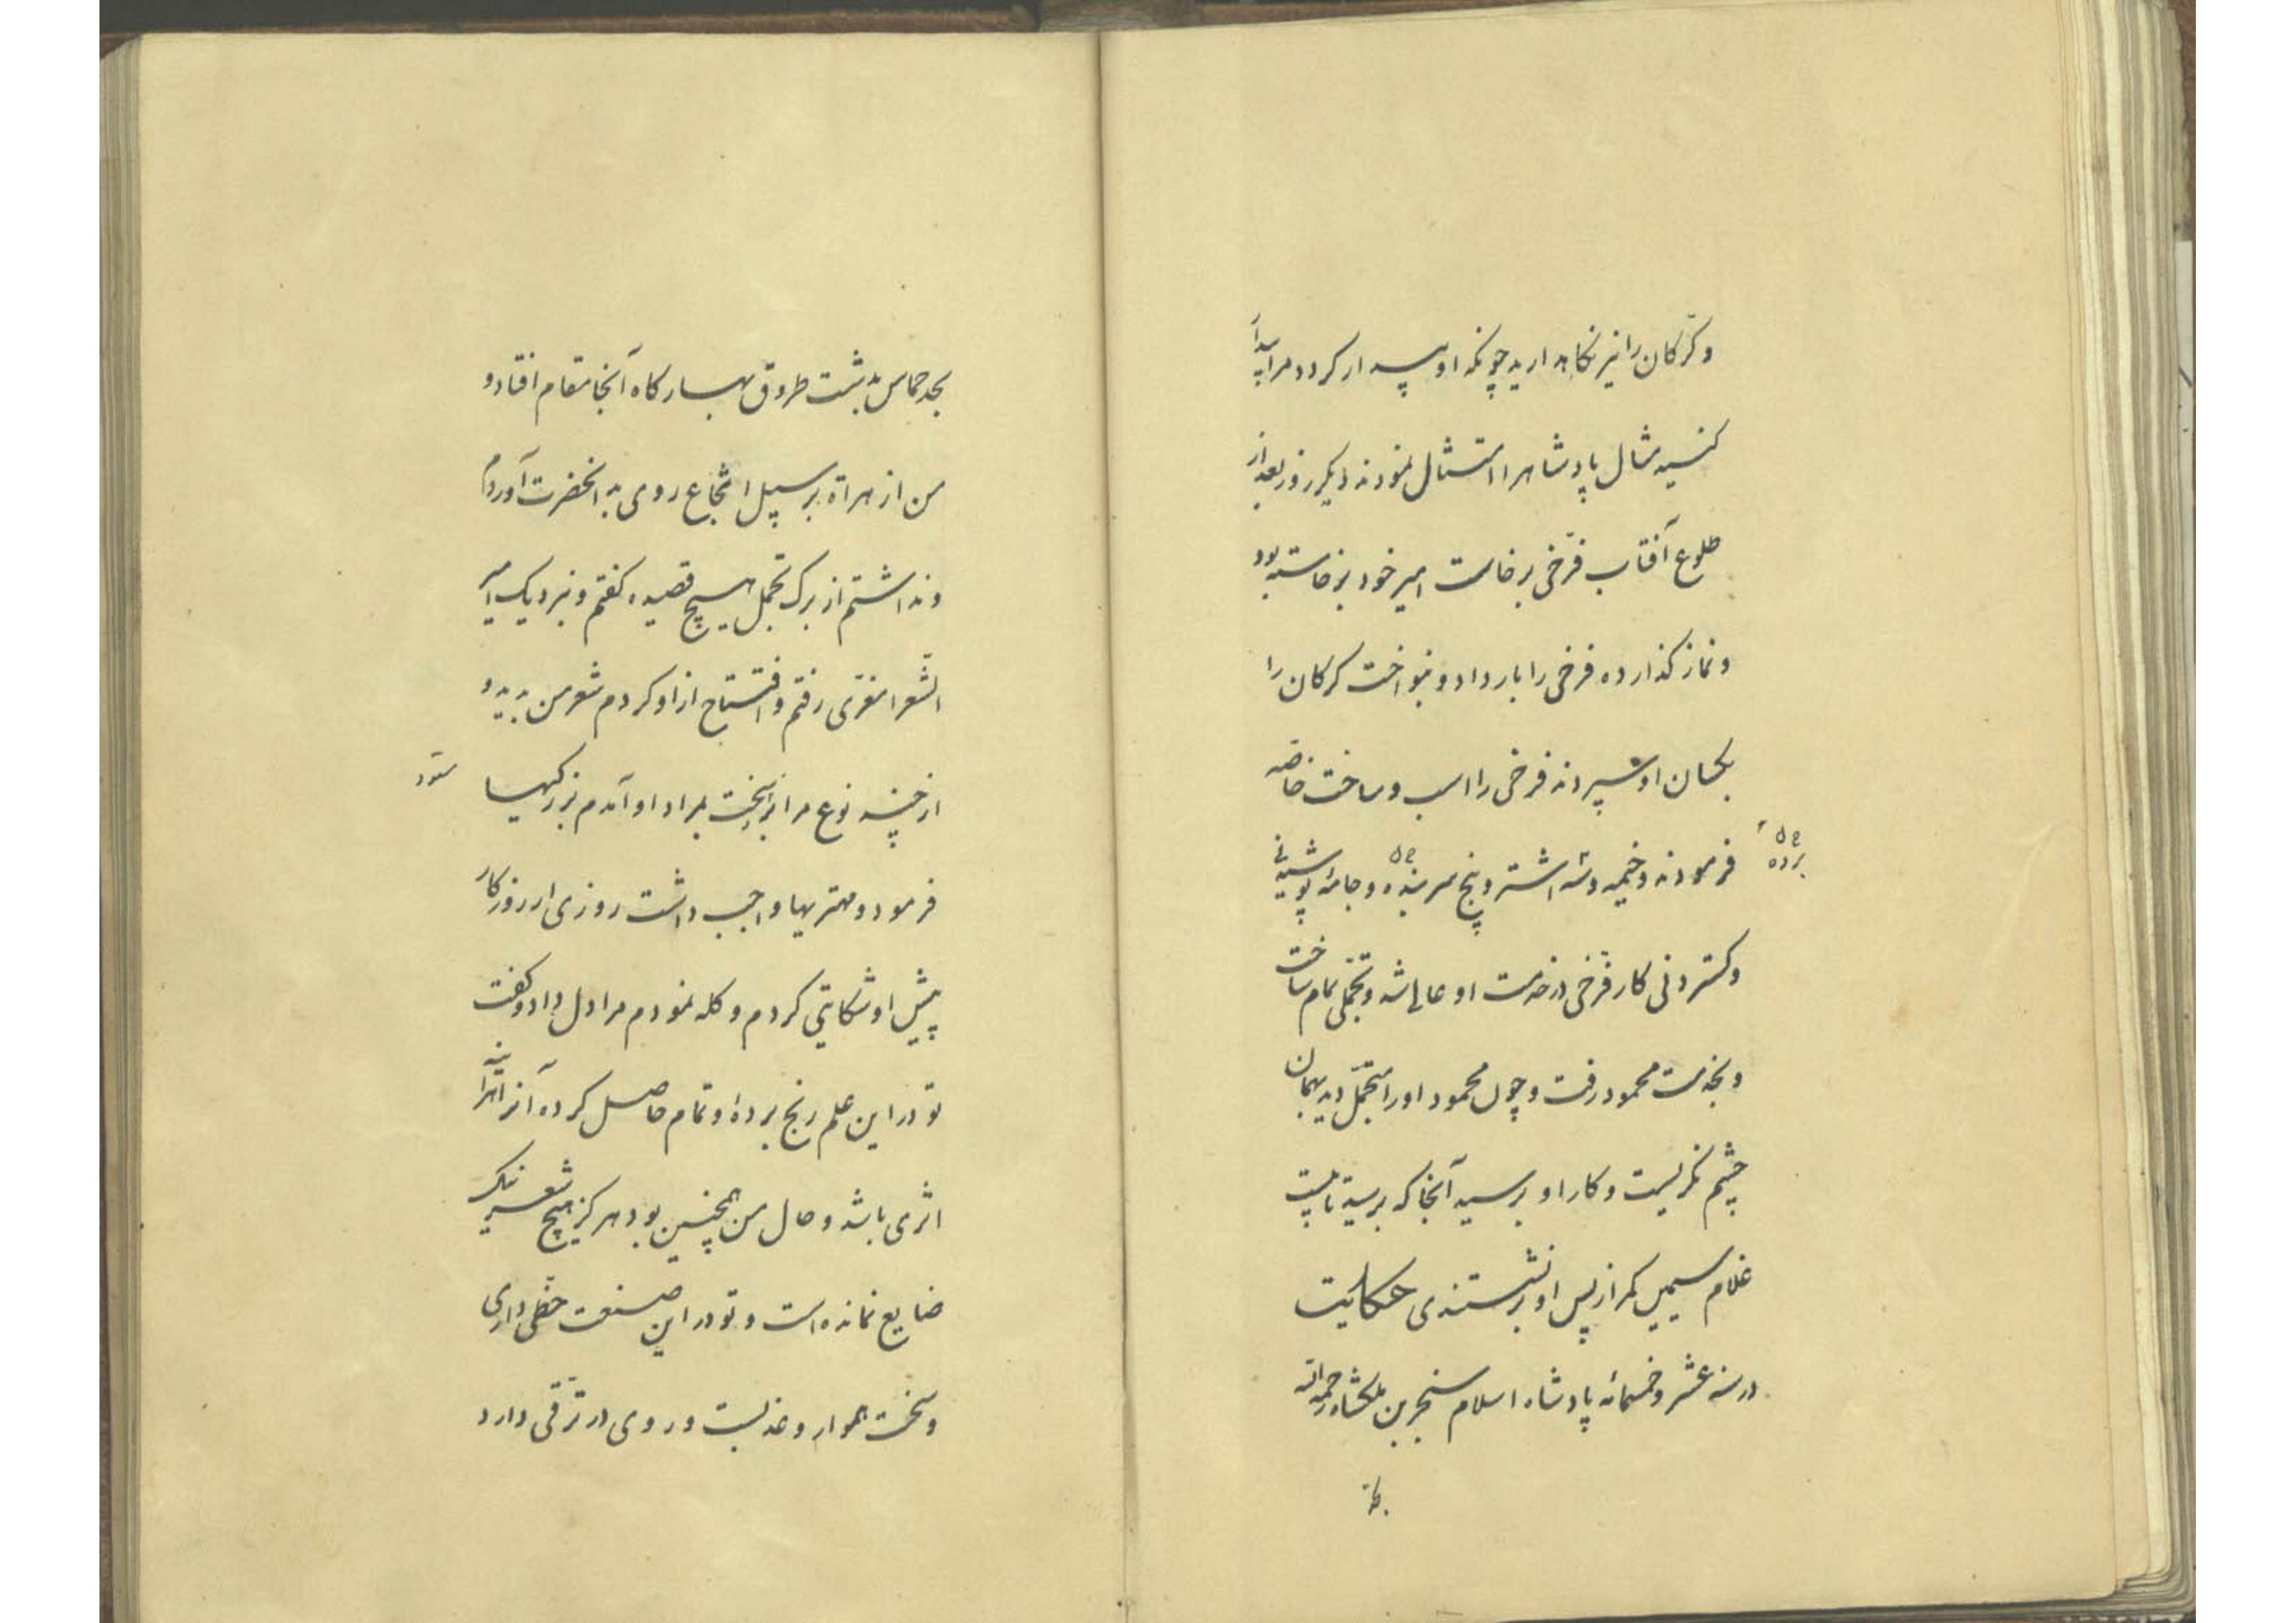 و کرکان را نیز نگاهدارید چونکه او بیدار کردد مرا بیدار
کنید مثال پادشاه را امتثال نمودند دیکر روز بعد از
طلوع آفتاب فرّخی برخاست امیر خود برخاسته بود
و نماز کذارده فرخی را بار داد و بنواخت کرکان را
بکسان او سپردند فرخی را اسب و ساخت خاصه
فرمودند و خیمه و سه اشتر و پنج سر بنده و جامهٔ پوشیدنی
برده
و کستردنی کار فرّخی در خدمت او عالی شد و تجملی تمام ساخت
و بخدمت محمود رفت و چون محمود او را متجمّل دید بهمان
چشم نکریست و کار او برسید آنجا که برسید تا بیست
غلام سیمین کمر از پس او برنشستندی حکایت
در سنه عشر و خمسمائه پادشاه اسلام سنجر بن ملکشاه رحمه الله
بحد
بحد طوس بدشت طروق بهار کاه آنجا مقام افتاد و
من از هراة بر سبیل انتجاع روی به آنحضرت آوردم
و نداشتم از برک و تجمل هیچ قصیده کفتم و نزدیک امیر
الشّعرا معزّی رفتم و افتتاح از او کردم شعر من بدید و
از چند نوع مرا برسخت بمراد او آمدم بزرکیها
ستود
فرمود و مهتریها واجب داشت روزی از روزکار
پیش او شکایتی کردم و کله نمودم مرا دل داد و کفت
تو در این علم رنج بردهٔ و تمام حاصل کرده آنرا البته
اثری باشد و حال من همچنین بود هرکز هیچ شعر نیک
ضایع نمانده است و تو در این صنعت حظّی داری
و سخنت هموار و عذبست و روی در ترقّی دارد